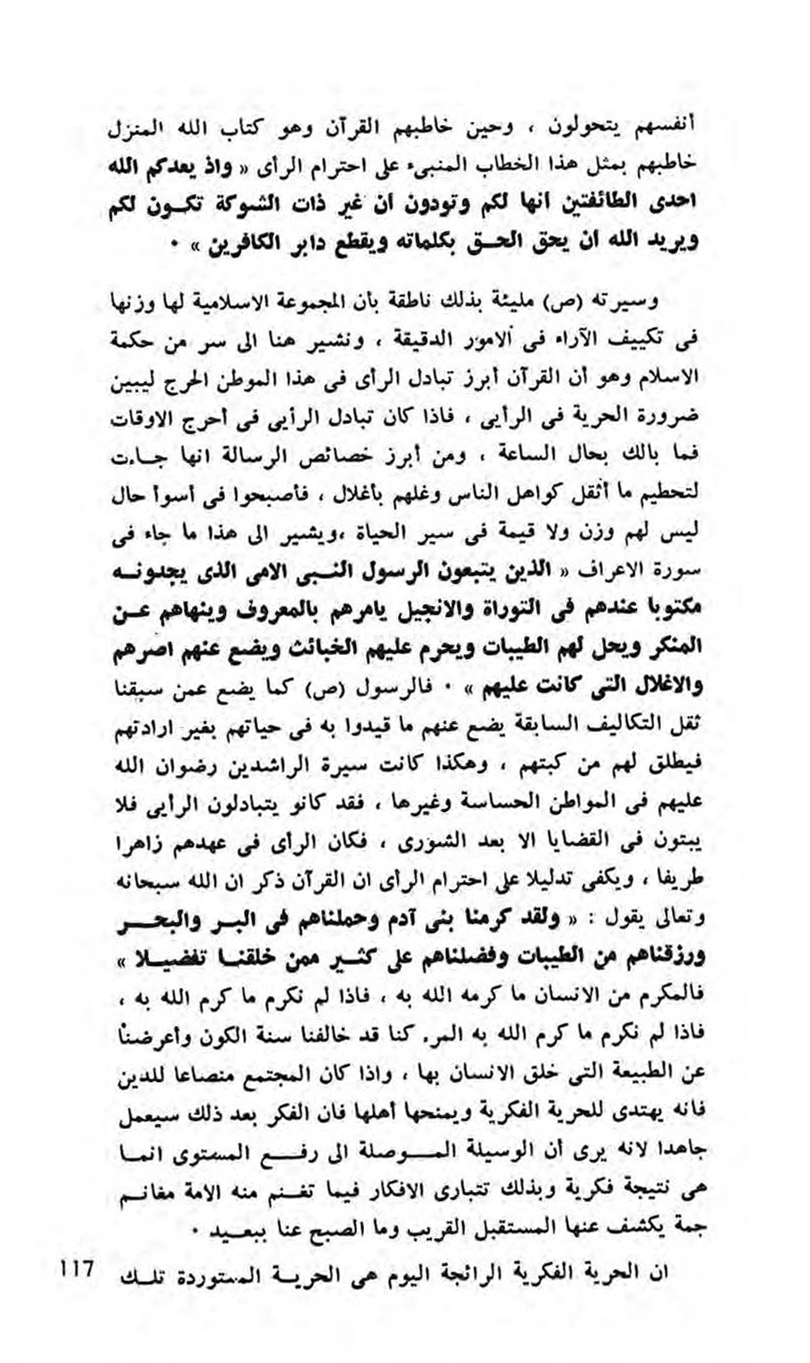 أنفسهم يتحولون ، وحين خاطبهم القرآن وهو كتاب الله المنزل
خاطبهم بمثل هذا الخطاب المنبىء على احترام الرأى « واذ يعدكم الله
احدى الطائفتين أنها لكم وتودون أن غير ذات الشوكة تكـون لكم
ويريد الله ان يحق الحـق بكلماته ويقطع دابر الكافرين » ٠
وسيرته (ص) مليئة بذلك ناطقة بأن المجموعة الاسلامية لها وزنها
فى تكييف الآراء فى الامور الدقيقة ، ونشير هنا الى سر من حكمة
الاسلام وهو أن القرآن أبرز تبادل الرأى فى هذا الموطن الحرج ليبين
ضرورة الحرية فى الرأيى ، فاذا كان تبادل الرأيى فى أحرج الاوقات
فما بالك بحال الساعة ، ومن أبرز خصائص الرسالة انها جـاءت
لتحطيم ما أثقل كواهل الناس وغلهم بأغلال ، فأصبحوا فى أسوأ حال
ليس لهم وزن ولا قيمة فى سير الحياة ،ويشير الى هذا ما جاء فى
سورة الاعراف « الذين يتبعون الرسول النـبـى الامى الذى يجدونــه
مكتوبا عندهم فى التوراة والانجيل يامرهم بالمعروف وينهاهم عـن
المنكر ويحل لهم الطيبات ويحرم عليهم الخبائث ويضع عنهم اصرهم
والاغلال التى كانت عليهم » ٠ فالرسول (ص) كما يضع عمن سبقنا
ثقل التكاليف السابقة يضع عنهم ما قيدوا به فى حياتهم بغير ارادتهم
فيطلق لهم من كبتهم ، وهكذا كانت سيرة الراشدين رضوان الله
عليهم فى المواطن الحساسة وغيرها ، فقد كانو يتبادلون الرأيى فلا
يبتون فى القضايا الا بعد الشورى ، فكان الرأى فى عهدهم زاهرا
طريفا ، ويكفى تدليلا على احترام الرأى ان القرآن ذكر ان الله سبحانه
وتعالى يقول : « ولقد كرمنا بنى آدم وحملناهم فى البـر والبحـر
ورزقناهم من الطيبات وفضلناهم على كثـير ممن خلقنـا تفضيـلا »
فالمكرم من الانسان ما كرمه الله به ، فاذا لم نكرم ما كرم الله به ،
فاذا لم نكرم ما كرم الله به المرء كنا قد خالفنا سنة الكون وأعرضنا
عن الطبيعة التى خلق الانسان بها ، واذا كان المجتمع منصاعا للدين
فانه يهتدى للحرية الفكرية ويمنحها أهلها فان الفكر بعد ذلك سيعمل
جاهدا لانه يرى أن الوسيلة المـوصلة الى رفـع المستوى انمـا
هى نتيجة فكرية وبذلك تتبارى الافكار فيما تغـنم منه الامة مغانـم
جمة يكشف عنها المستقبل القريب وما الصبح عنا ببعـيد ٠
ان الحرية الفكرية الرائجة اليوم هى الحريـة المستوردة تلـك
117